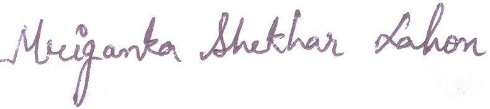 Mriganka Shekhar Lahon